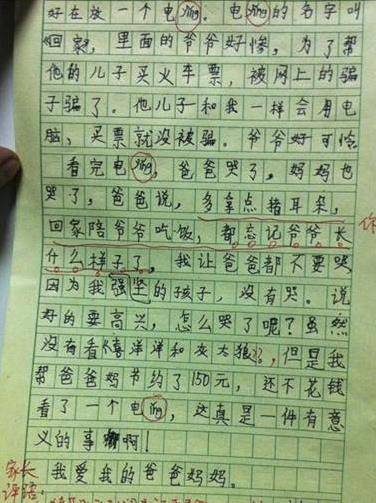 好在放一个电yǐng。电yǐng的名字叫
《回家》，里面的爷爷好惨，为了帮
他的儿子买火车票，被网上的骗
子骗了。他儿子和我一样会用电
脑，买票就没被骗。爷爷好可怜
看完电yǐng，爸爸哭了，妈妈也
哭了，爸爸说，多拿点猪耳朵，
回家陪爷爷吃饭，都忘记爷爷长
什么样子了，我让爸爸都不要哭
因为我坚强的孩子，没有哭。说
好的要高兴，怎么哭了呢？虽然
没有看《喜洋洋和灰太狼》，但是我
帮爸爸妈节约了150元，还不花钱
看了一个电yǐng，这真是一件有意
义的事啊！
我爱我的爸爸妈妈。
家长
评语：